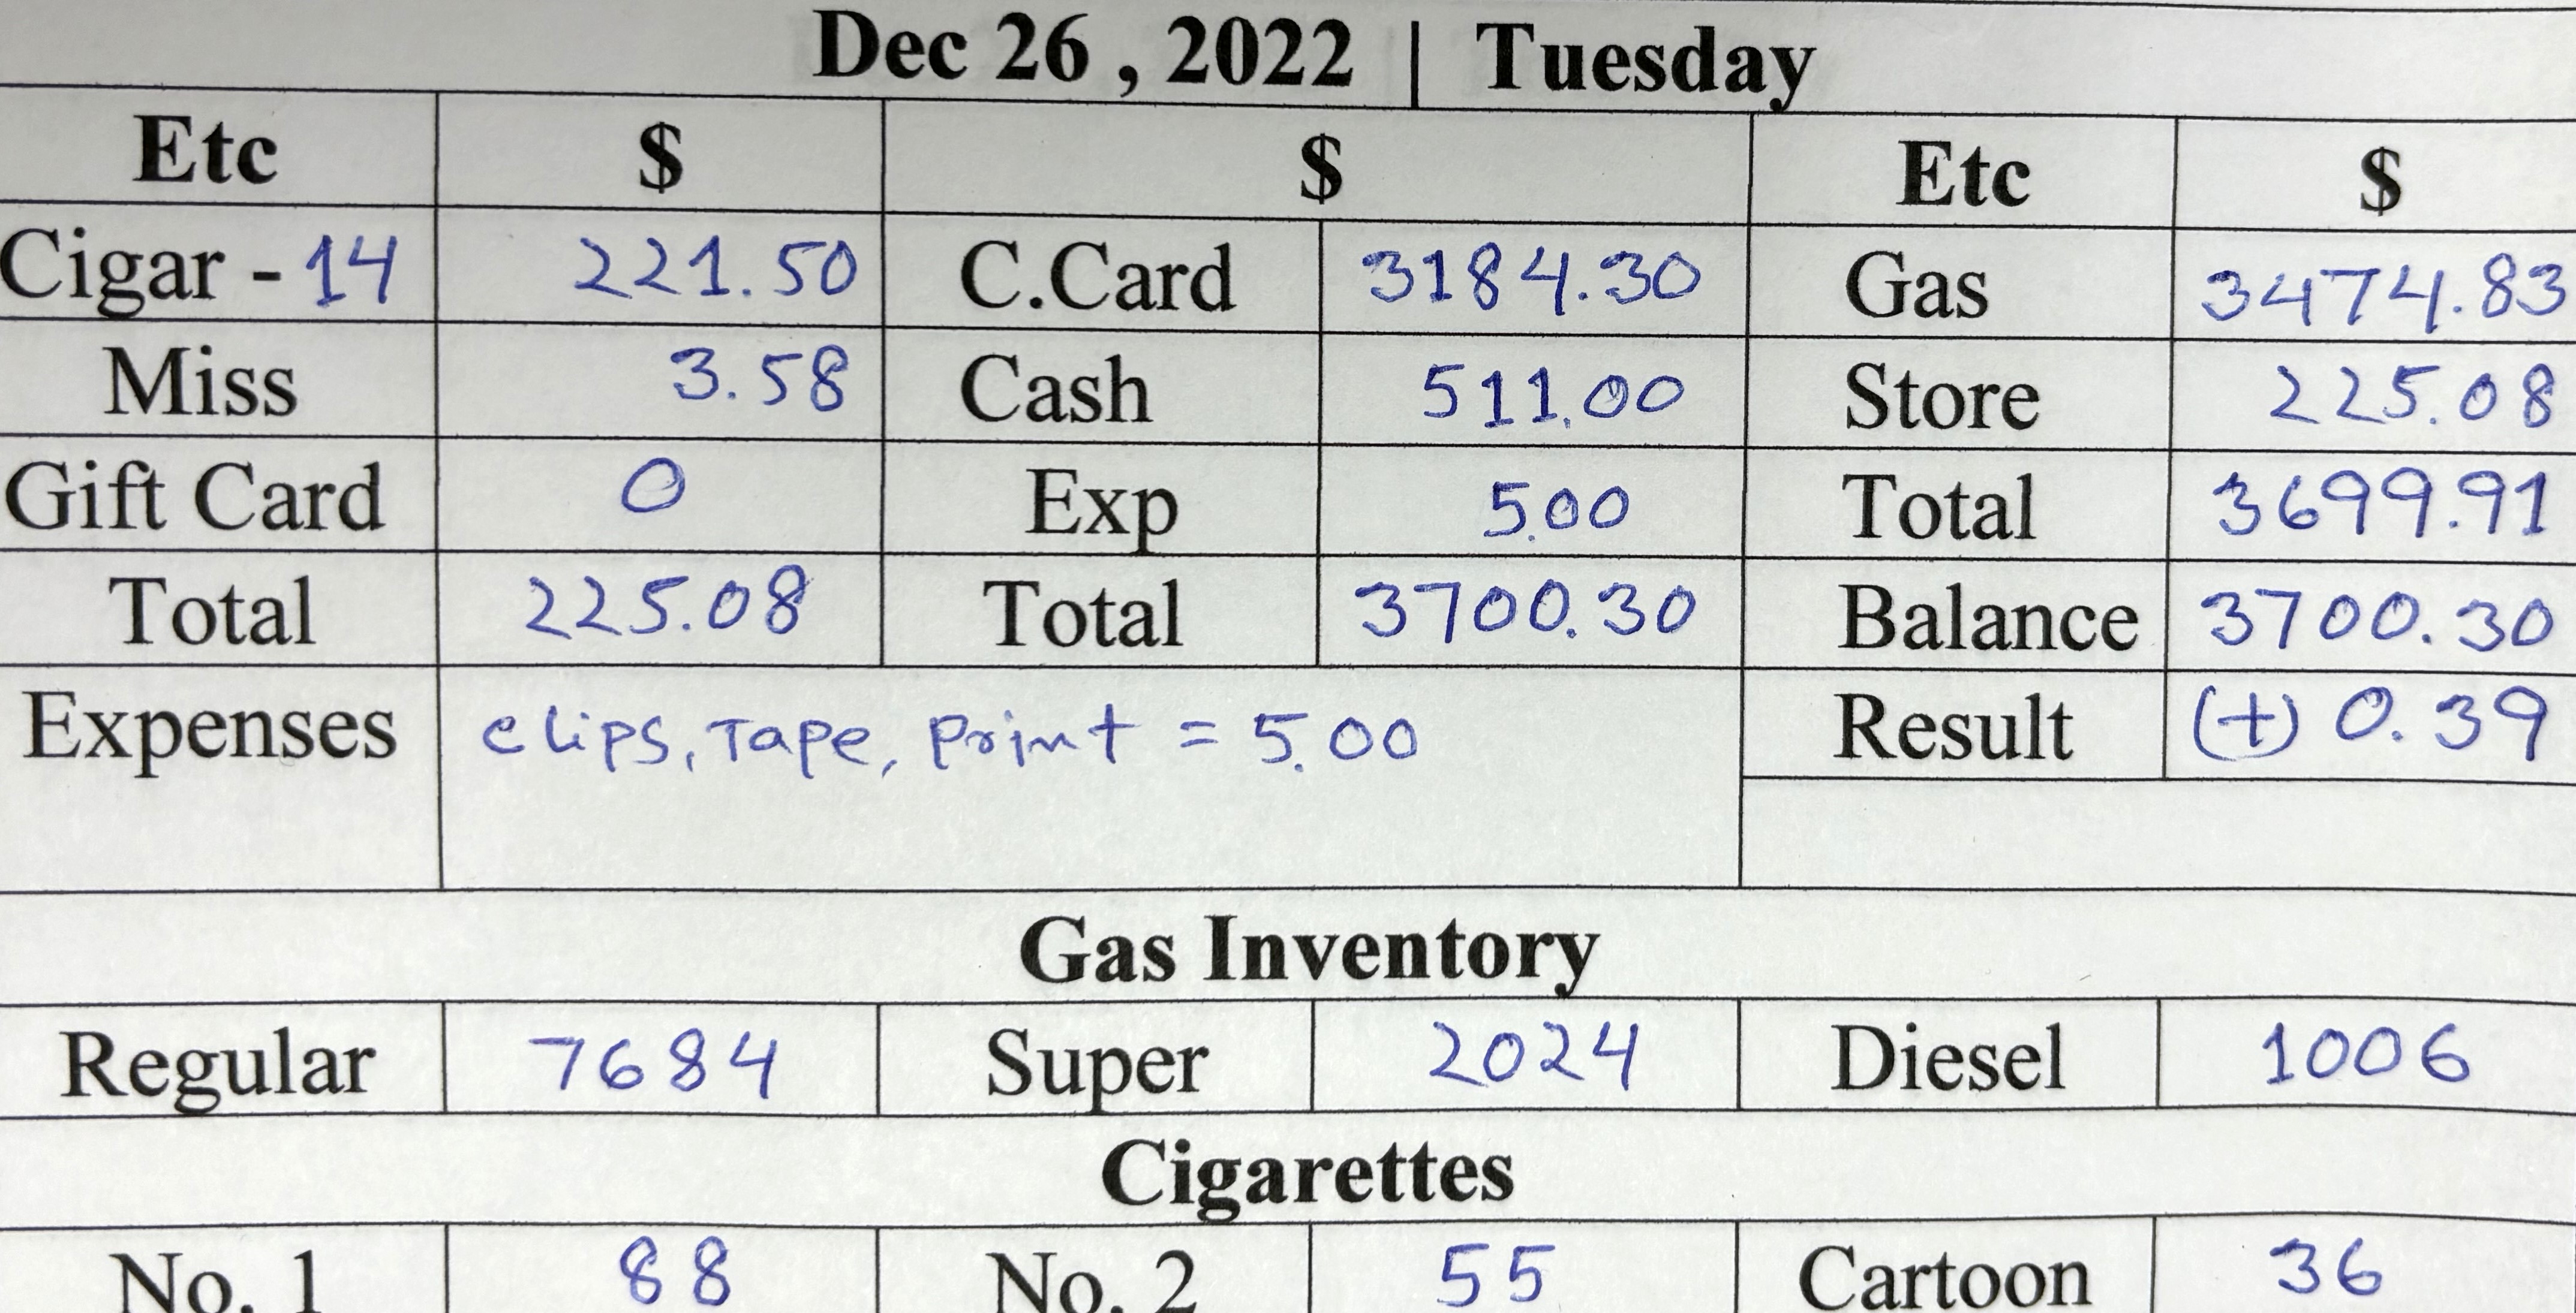 Dec 26 , 2022 | Tuesday
Etc $ $ Etc $
Cigar - 14 221.50 C.Card 3184.30 Gas 3474.83
Miss 3.58 Cash 511.00 Store 225.08
Gift Card 0 Exp 5.00 Total 3699.91
Total 225.08 Total 3700.30 Balance 3700.30
Expenses clips, Tape, Print = 5.00 Result (+) 0.39
Gas Inventory
Regular 7684 Super 2024 Diesel 1006
Cigarettes
No. 1 88 No. 2 55 Cartoon 36